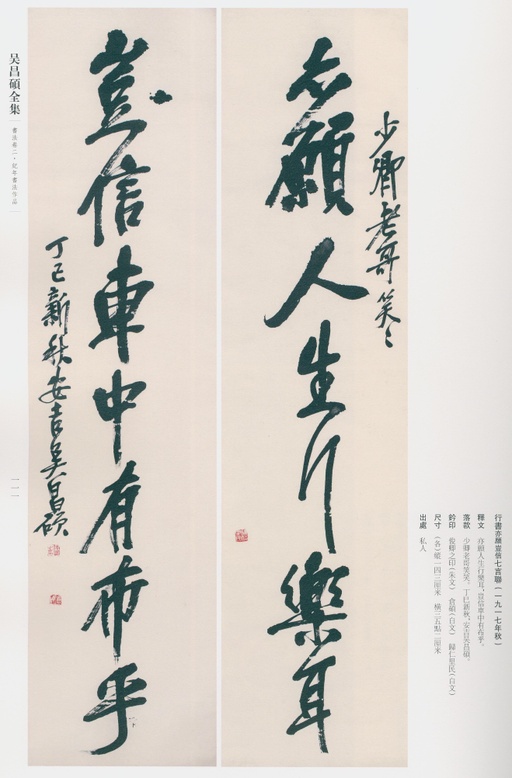 亦願人生行樂耳
少卿老哥笑笑
豈信車中有布乎
丁巳新秋安吉吳昌碩
行書亦願豈信七言聯（一九一七年秋）
釋文　亦願人生行樂耳，豈信車中有布乎。
落款　少卿老哥笑笑。丁巳新秋，安吉吳昌碩。
鈐印　俊卿之印（朱文）　倉碩（白文）　歸仁里民（白文）
尺寸　（各）縱一四三厘米　橫三五點二厘米
出處　私人
吴昌碩全集
書法卷二·紀年書法作品
一一一